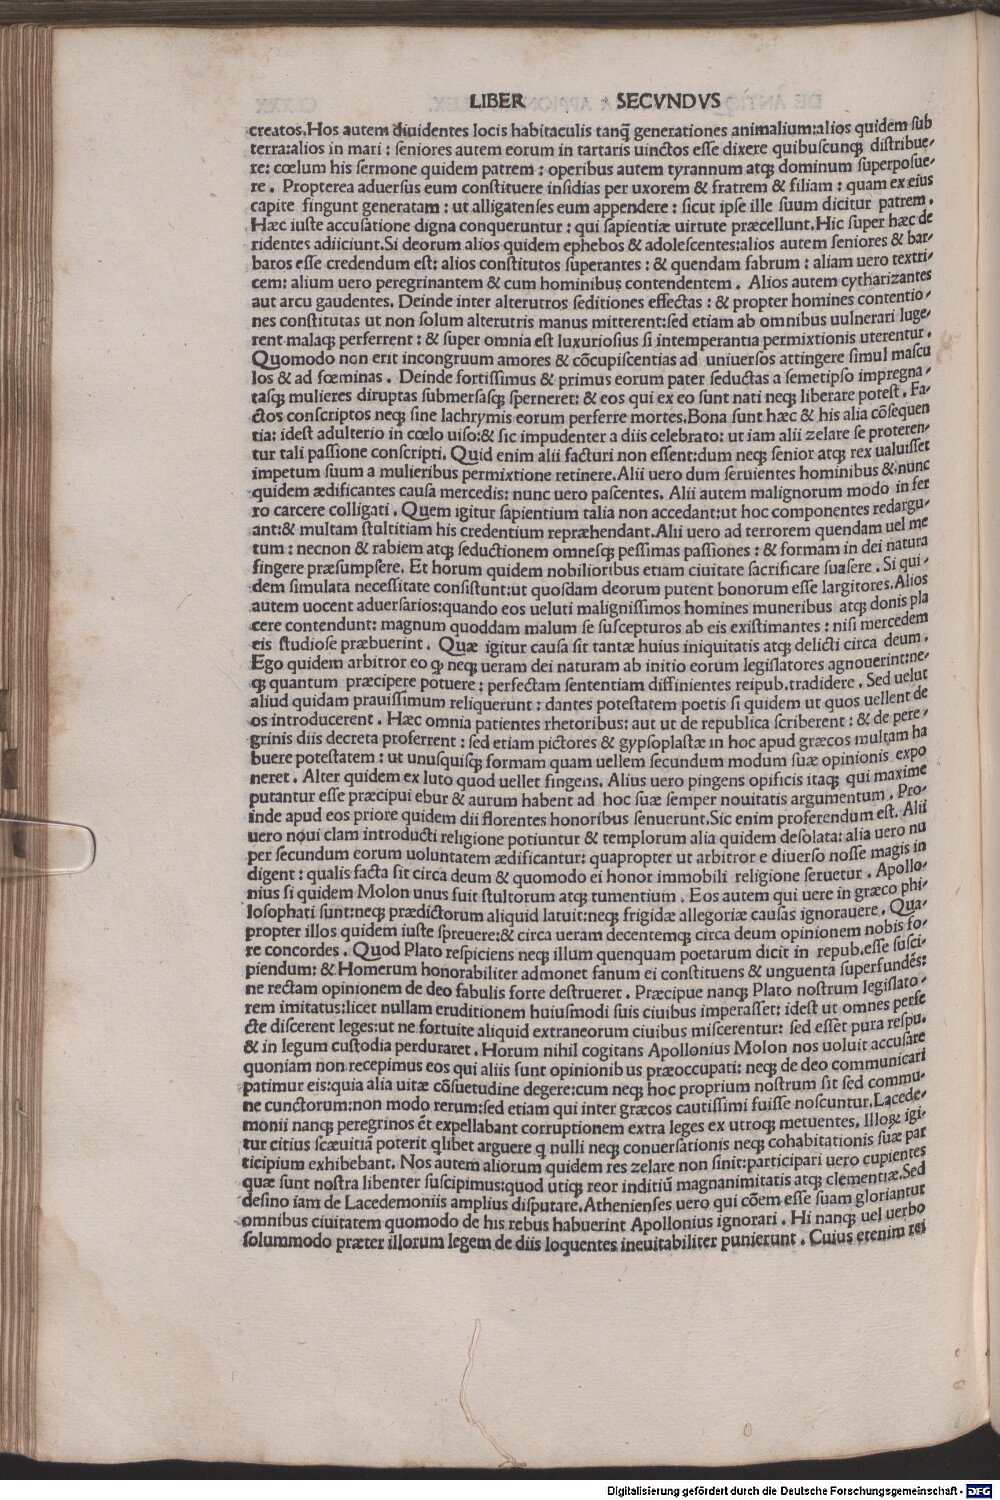 LIBER SECVNDVS
creatos.Hos autem diuidentes locis habitaculis tanq̃ generationes animalium:alios quidem sub
terra:alios in mari : seniores autem eorum in tartaris uinctos esse dixere quibuscunqꝫ distribue-
re: cœlum his sermone quidem patrem : operibus autem tyrannum atqꝫ dominum superposue-
re . Propterea aduersus eum constituere insidias per uxorem & fratrem & filiam : quam ex eius
capite fingunt generatam : ut alligatenses eum appendere : sicut ipse ille suum dicitur patrem .
Hæc iuste accusatione digna conqueruntur : qui sapientiæ uirtute præcellunt.Hic super hæc de
ridentes adiiciunt.Si deorum alios quidem ephebos & adolescentes:alios autem seniores & bar-
baros esse credendum est: alios constitutos superantes : & quendam fabrum : aliam uero textri-
cem: alium uero peregrinantem & cum hominibus contendentem . Alios autem cytharizantes
aut arcu gaudentes. Deinde inter alterutros seditiones effectas : & propter homines contentio-
nes constitutas ut non solum alterutris manus mitterent:sed etiam ab omnibus uulnerari luge-
rent malaqꝫ perferrent : & super omnia est luxuriosius si intemperantia permixtionis uterentur .
Quomodo non erit incongruum amores & cõcupiscentias ad uniuersos attingere simul mascu
los & ad fœminas . Deinde fortissimus & primus eorum pater seductas a semetipso impregna-
tasqꝫ mulieres diruptas submersasqꝫ sperneret: & eos qui ex eo sunt nati neqꝫ liberare potest . Fa-
ctos conscriptos neqꝫ sine lachrymis eorum perferre mortes.Bona sunt hæc & his alia cõsequen
tia: idest adulterio in cœlo uiso:& sic impudenter a diis celebrato: ut iam alii zelare se proteren-
tur tali passione conscripti. Quid enim alii facturi non essent:dum neqꝫ senior atqꝫ rex ualuisset
impetum suum a mulieribus permixtione retinere.Alii uero dum seruientes hominibus & nunc
quidem ædificantes causa mercedis: nunc uero pascentes. Alii autem malignorum modo in fer
ro carcere colligati . Quem igitur sapientium talia non accedant:ut hoc componentes redargu-
ant:& multam stultitiam his credentium repræhendant.Alii uero ad terrorem quendam uel me
tum : necnon & rabiem atqꝫ seductionem omnesqꝫ pessimas passiones : & formam in dei natura
fingere præsumpsere. Et horum quidem nobilioribus etiam ciuitate sacrificare suasere . Si qui-
dem simulata necessitate consistunt:ut quosdam deorum putent bonorum esse largitores.Alios
autem uocent aduersarios:quando eos ueluti malignissimos homines muneribus atqꝫ donis pla
cere contendunt: magnum quoddam malum se suscepturos ab eis existimantes : nisi mercedem
eis studiose præbuerint . Quæ igitur causa sit tantæ huius iniquitatis atqꝫ delicti circa deum .
Ego quidem arbitror eo ꝙ neqꝫ ueram dei naturam ab initio eorum legislatores agnouerint:ne-
qꝫ quantum præcipere potuere : perfectam sententiam diffinientes reipub.tradidere . Sed uelut
aliud quidam prauissimum reliquerunt : dantes potestatem poetis si quidem ut quos uellent de
os introducerent . Hæc omnia patientes rhetoribus: aut ut de republica scriberent : & de pere-
grinis diis decreta proferrent : sed etiam pictores & gypsoplastæ in hoc apud græcos multam ha
buere potestatem : ut unusquisqꝫ formam quam uellem secundum modum suæ opinionis expo
neret . Alter quidem ex luto quod uellet fingens. Alius uero pingens opificis itaqꝫ qui maxime
putantur esse præcipui ebur & aurum habent ad hoc suæ semper nouitatis argumentum . Pro-
inde apud eos priore quidem dii florentes honoribus senuerunt.Sic enim proferendum est. Alii
uero noui clam introducti religione potiuntur & templorum alia quidem desolata: alia uero nu
per secundum eorum uoluntatem ædificantur: quapropter ut arbitror e diuerso nosse magis in
digent : qualis facta sit circa deum & quomodo ei honor immobili religione seruetur . Apollo-
nius si quidem Molon unus fuit stultorum atqꝫ tumentium . Eos autem qui uere in græco phi-
losophati sunt:neqꝫ prædictorum aliquid latuit:neqꝫ frigidæ allegoriæ causas ignorauere . Qua-
propter illos quidem iuste spreuere:& circa ueram decentemqꝫ circa deum opinionem nobis fo-
re concordes . Quod Plato respiciens neqꝫ illum quenquam poetarum dicit in repub.esse susci-
piendum: & Homerum honorabiliter admonet fanum ei constituens & unguenta superfundẽs:
ne rectam opinionem de deo fabulis forte destrueret . Præcipue nanqꝫ Plato nostrum legislato-
rem imitatus:licet nullam eruditionem huiusmodi suis ciuibus imperasset: idest ut omnes perfe
cte discerent leges:ut ne fortuite aliquid extraneorum ciuibus misceretur: sed esset pura respu.
& in legum custodia perduraret . Horum nihil cogitans Apollonius Molon nos uoluit accusare
quoniam non recepimus eos qui aliis sunt opinionibus præoccupati: neqꝫ de deo communicari
patimur eis:quia alia uitæ cõsuetudine degere:cum neqꝫ hoc proprium nostrum sit sed commu-
ne cunctorum:non modo rerum:sed etiam qui inter græcos cautissimi fuisse noscuntur.Lacede-
monii nanqꝫ peregrinos ẽt expellabant corruptionem extra leges ex utroqꝫ metuentes. Illoꝝ igi-
tur citius scæuitiã poterit ꝗlibet arguere ꝙ nulli neqꝫ conuersationis neqꝫ cohabitationis suæ par
ticipium exhibebant. Nos autem aliorum quidem res zelare non sinit:participari uero cupientes
quæ sunt nostra libenter suscipimus:quod utiqꝫ reor inditiũ magnanimitatis atqꝫ clementiæ.Sed
desino iam de Lacedemoniis amplius disputare.Athenienses uero qui cõem esse suam gloriantur
omnibus ciuitatem quomodo de his rebus habuerint Apollonius ignorari . Hi nanqꝫ uel uerbo
solummodo præter illorum legem de diis loquentes ineuitabiliter punierunt . Cuius etenim rei
Digitalisierung gefördert durch die Deutsche Forschungsgemeinschaft - DFG